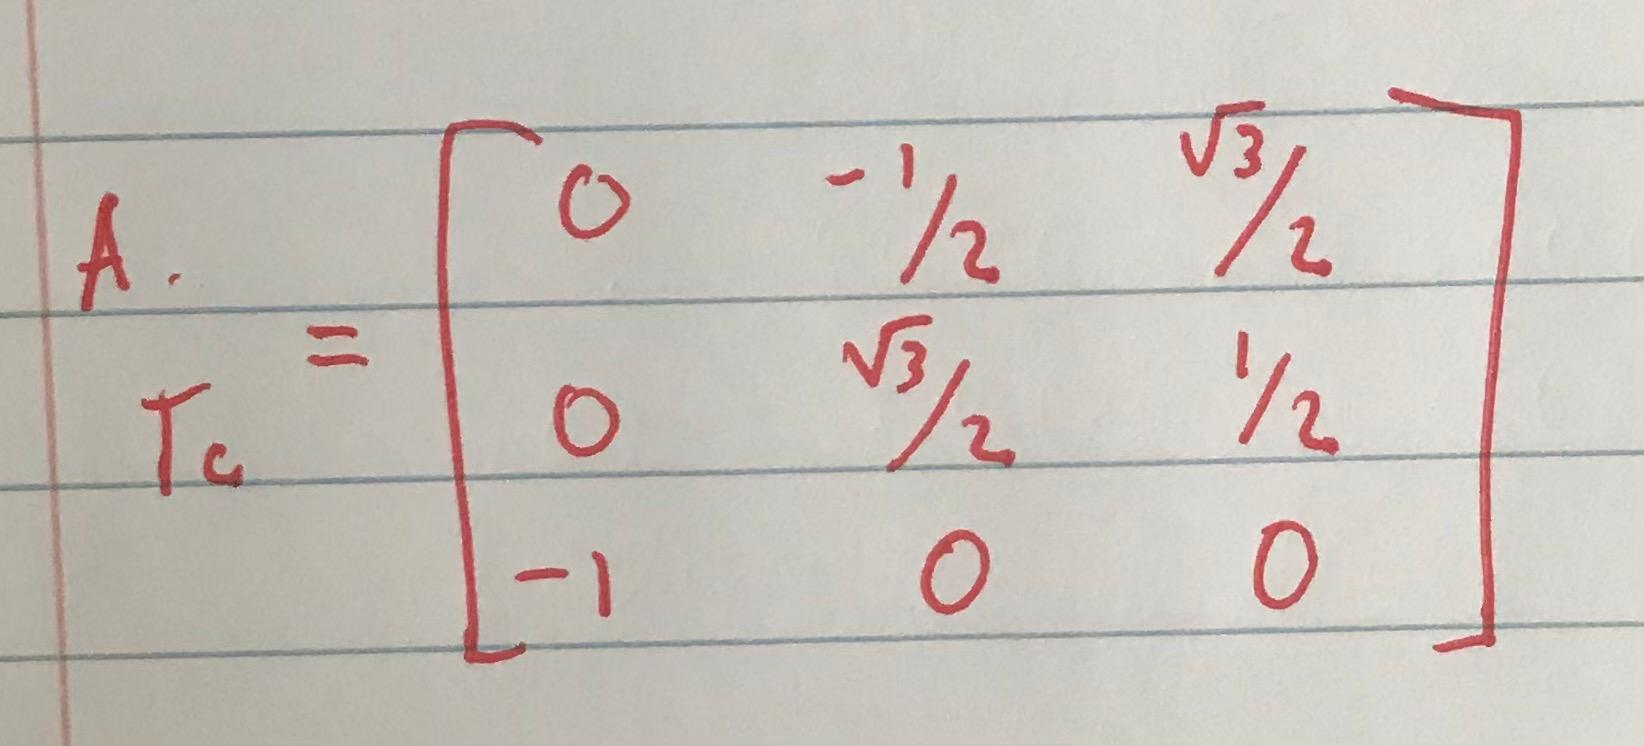 A.
T_c = [ 0 -1/2 √3/2
0 √3/2 1/2
-1 0 0 ]